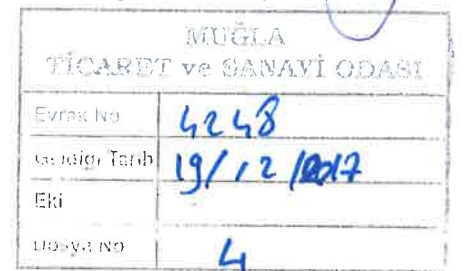 MUĞLA
TİCARET ve SANAYİ ODASI
Evrak No 4248
Geldiği Tarih 19/12/2017
Eki
Dosya No 4